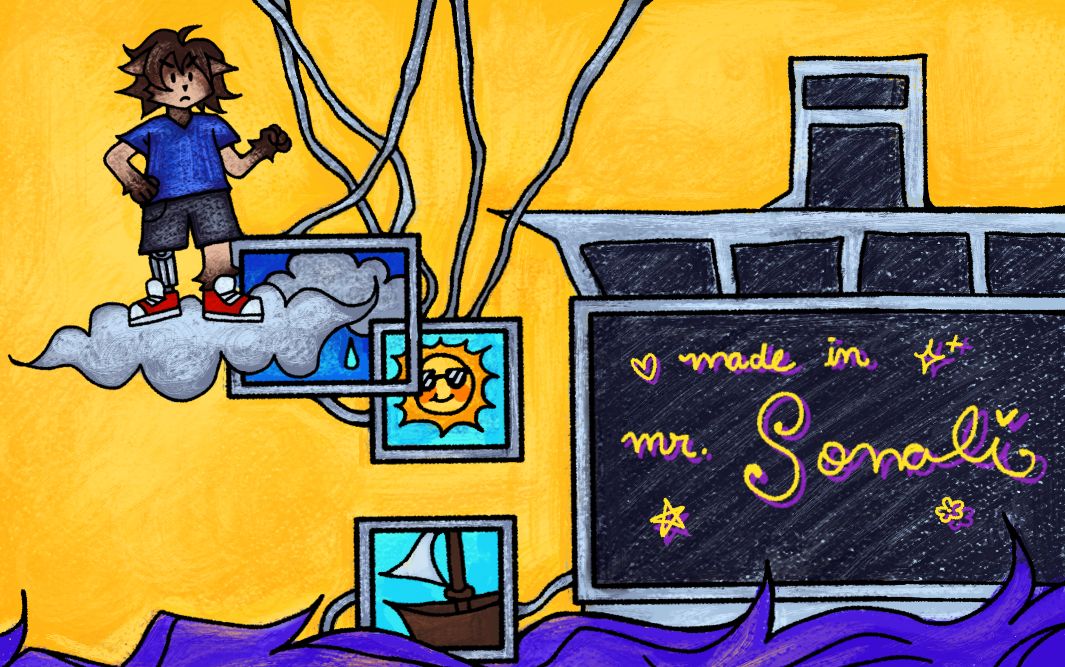 made in
mr. Sonali